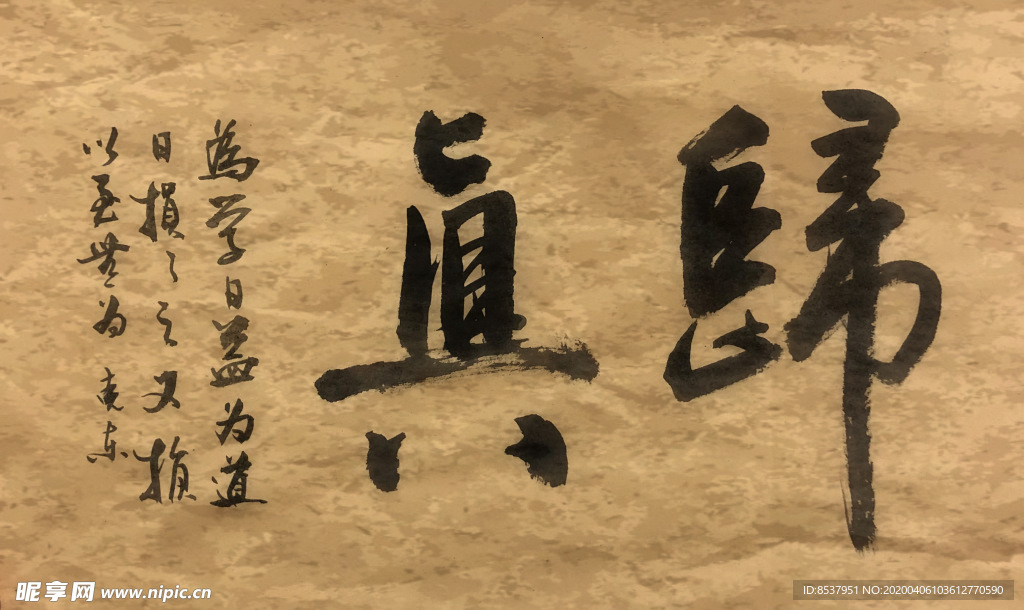 歸真
為學日益为道
日損之之又損
以至無为 克東
昵享网 www.nipic.cn
ID:8537951 NO:20200406103612770590